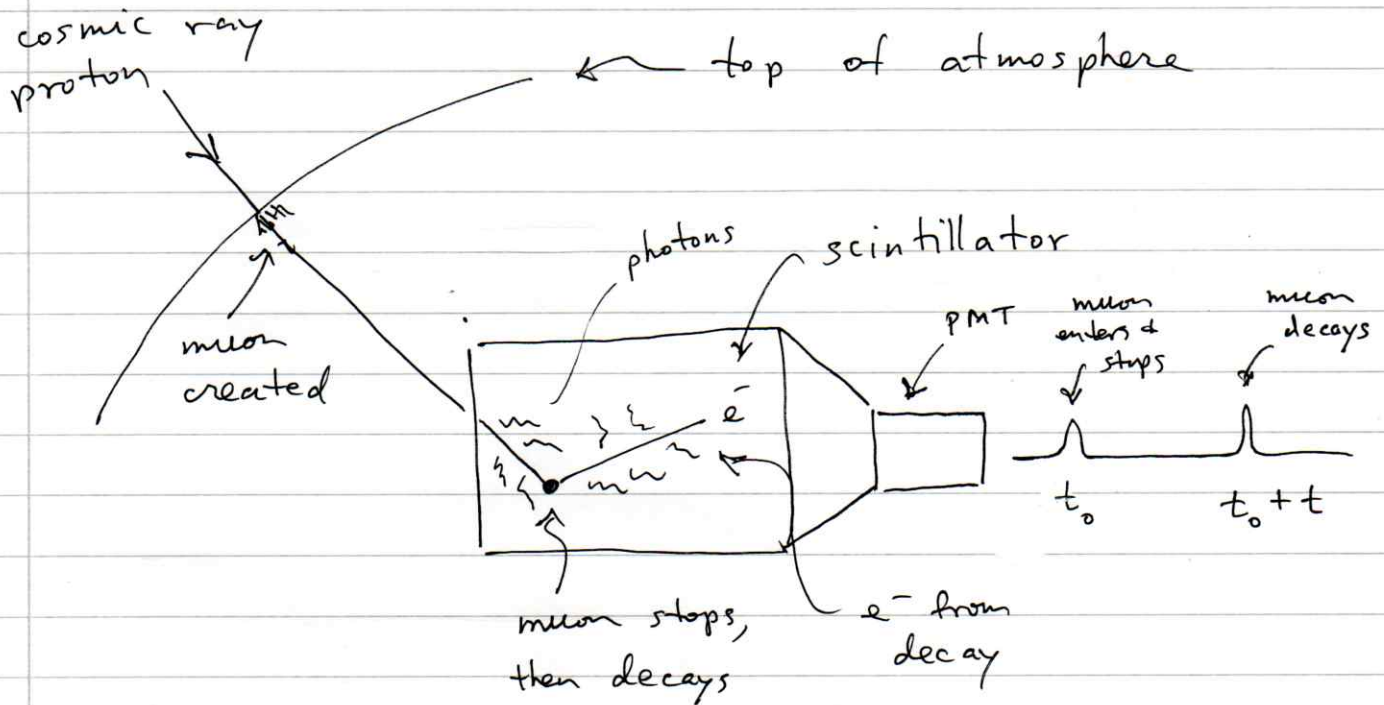 cosmic ray
proton
top of atmosphere
muon
created
photons
scintillator
e⁻
PMT
muon
enters &
stops
muon
decays
t₀
t₀ + t
muon stops,
then decays
e⁻ from
decay